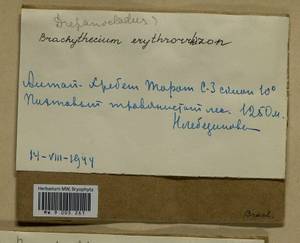 Drepanocladus?
Brachythecium erythrorrhizon
Алтай - Хребет С-З склон 10°
Пихтовый травянистый лес. 1250 м.
Н. Лебединова
14-VIII-1944
Herbarium MW, Bryophyta
Brach.